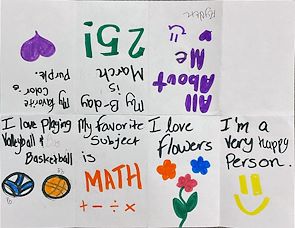 All
About
Me
My B-day
is
March
25!
My favorite
color is
Purple.
I love Playing
Volleyball &
Basketball
My favorite
Subject
is
MATH
+ - ÷ ×
I love
Flowers
I'm a
Very Happy
Person.